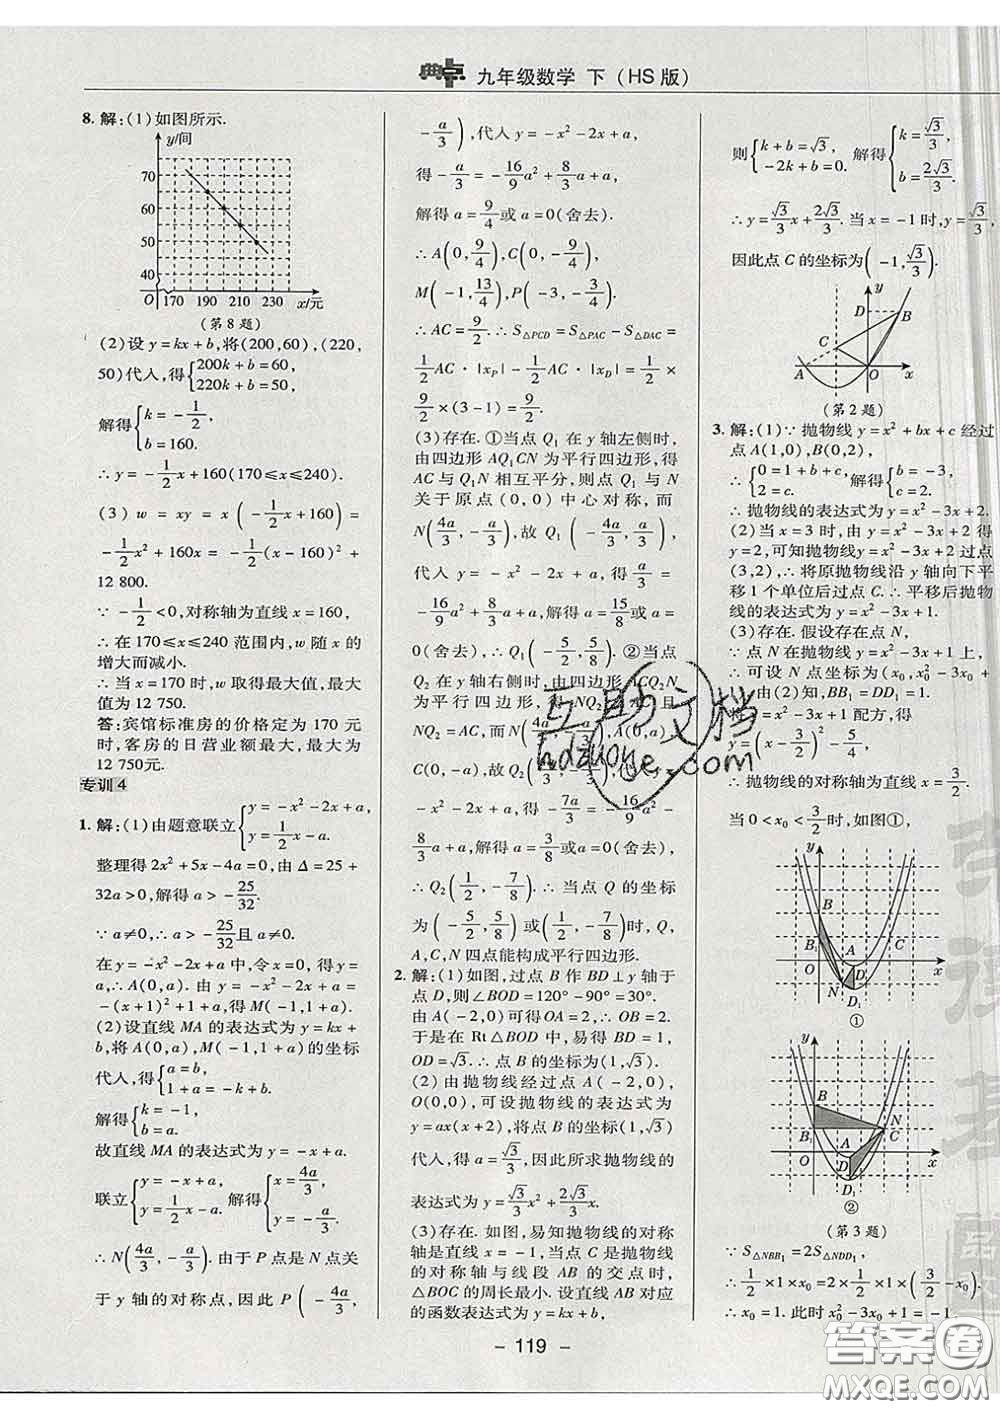 典中点 九年级数学 下（HS版）
8.解:(1)如图所示.
y/间
70
60
50
50
40
O 170 190 210 230 x/元
(第8题)
(2)设y=kx+b,将(200,60),(220,
50)代入,得{200k+b=60, 220k+b=50,
解得{k=-1/2, b=160.
∴y=-1/2x+160(170≤x≤240).
(3) w = xy = x(-1/2x+160) =
-1/2x²+160x=-1/2(x-160)²+
12 800.
∵-1/2<0,对称轴为直线x=160,
∴在170≤x≤240范围内,w随x的
增大而减小.
∴当x=170时,w取得最大值,最大
值为12 750.
答:宾馆标准房的价格定为170元
时,客房的日营业额最大,最大为
12 750元.
专训4
1.解:(1)由题意联立{y=-x²-2x+a, y=1/2x-a.
整理得2x²+5x-4a=0,由Δ=25+
32a>0,解得a>-25/32.
∵a≠0,∴a>-25/32且a≠0.
在y=-x²-2x+a中,令x=0,得y=
a,∴A(0,a). 由y=-x²-2x+a=
-(x+1)²+1+a,得M(-1,1+a).
(2)设直线MA的表达式为y=kx+
b,将A(0,a),M(-1,1+a)的坐标
代入,得{a=b, 1+a=-k+b.
解得{k=-1, b=a.
故直线MA的表达式为y=-x+a.
联立{y=-x+a, y=1/2x-a. 解得{x=4a/3, y=-a/3.
∴N(4a/3,-a/3). 由于P点是N点关
于y轴的对称点,因此P(-4a/3,
-a/3),代入y=-x²-2x+a,
得-a/3=-16/9a²+8/3a+a,
解得a=9/4或a=0(舍去).
∴A(0,9/4),C(0,-9/4),
M(-1,13/4),P(-3,-3/4).
∴AC=9/2. ∴S△PCD=S△PAC-S△DAC=
1/2AC·|xP|-1/2AC·|xD|=1/2×
9/2×(3-1)=9/2.
(3)存在.①当点Q₁在y轴左侧时,
由四边形AQ₁CN为平行四边形,得
AC与Q₁N互相平分,则点Q₁与N
关于原点(0,0)中心对称,而
N(4a/3,-a/3),故Q₁(-4a/3,a/3),
代入y=-x²-2x+a,得a/3=
-16/9a²+8/3a+a,解得a=15/8或a=
0(舍去),∴Q₁(-5/2,5/8).②当点
Q₂在y轴右侧时,由四边形ACQ₂N
为平行四边形,得NQ₂∥AC且
NQ₂=AC,而N(4a/3,-a/3),A(0,a),
C(0,-a),故Q₂(4a/3,-7a/3).代入y=
-x²-2x+a,得-7a/3=-16/9a²-
8/3a+a,解得a=3/8或a=0(舍去),
∴Q₂(1/2,-7/8).∴当点Q的坐标
为(-5/2,5/8)或(1/2,-7/8)时,Q,
A,C,N四点能构成平行四边形.
2.解:(1)如图,过点B作BD⊥y轴于
点D,则∠BOD=120°-90°=30°.
由A(-2,0)可得OA=2,∴OB=2.
于是在Rt△BOD中,易得BD=1,
OD=√3.∴点B的坐标为(1,√3).
(2)由抛物线经过点A(-2,0),
O(0,0),可设抛物线的表达式为
y=ax(x+2),将点B的坐标(1,√3)
代入,得a=√3/3,因此所求抛物线的
表达式为y=√3/3x²+2√3/3x.
(3)存在.如图,易知抛物线的对称
轴是直线x=-1,当点C是抛物线
的对称轴与线段AB的交点时,
△BOC的周长最小.设直线AB对应
的函数表达式为y=kx+b,
则{k+b=√3, -2k+b=0. 解得{k=√3/3, b=2√3/3.
∴y=√3/3x+2√3/3. 当x=-1时,y=√3/3,
因此点C的坐标为(-1,√3/3).
y
D
B
C
A
O
x
(第2题)
3.解:(1)∵抛物线y=x²+bx+c经过
点A(1,0),B(0,2),
∴{0=1+b+c, 2=c. 解得{b=-3, c=2.
∴抛物线的表达式为y=x²-3x+2.
(2)当x=3时,由y=x²-3x+2得
y=2,可知抛物线y=x²-3x+2过点
(3,2),∴将原抛物线沿y轴向下平
移1个单位后过点C.∴平移后抛物
线的表达式为y=x²-3x+1.
(3)存在.假设存在点N,
∵点N在抛物线y=x²-3x+1上,
∴可设N点坐标为(x₀,x₀²-3x₀
+1).由(2)知,BB₁=DD₁=1.
将y=x²-3x+1配方,得
y=(x-3/2)²-5/4,
∴抛物线的对称轴为直线x=3/2.
当0<x₀<3/2时,如图①,
y
B
B₁
C
A
O
D
x
N
D₁
①
y
B
B₁
N
C
A
O
D
x
D₁
②
(第3题)
∵S△NBB₁=2S△NDD₁,
∴1/2×1×x₀=2×1/2×1×(3/2-x₀).
∴x₀=1.此时x₀²-3x₀+1=-1.
- 119 -
互助文档
hdzuoye.com
答案圈
MXQE.COM